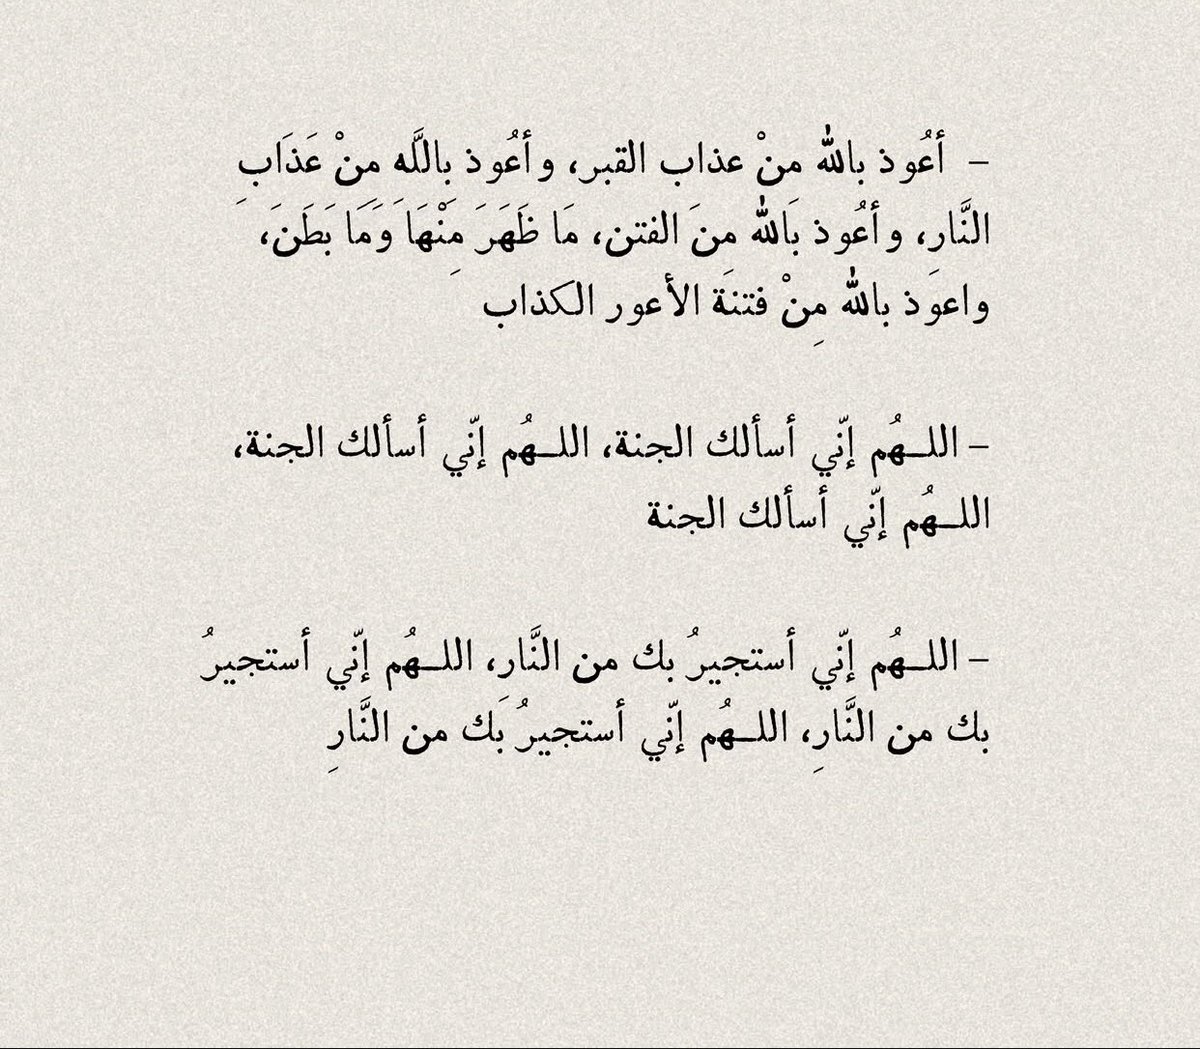 – أعُوذ بالله منْ عذاب القبر، وأعُوذ بِاللَّه مِنْ عَذَابِ
النَّارِ، وأعُوذ بَالله منَ الفتن، مَا ظَهَرَ مِنْهَا وَمَا بَطَنَ،
واعوَذ بالله مِنْ فتنَة الأعور الكذاب
– اللـهُم إنّي أسألك الجنة، اللـهُم إنّي أسألك الجنة،
اللـهُم إنّي أسألك الجنة
– اللـهُم إنّي أستجيرُ بك من النَّار، اللـهُم إنّي أستجيرُ
بك من النَّارِ، اللـهُم إنّي أستجيرُ بَك من النَّارِ